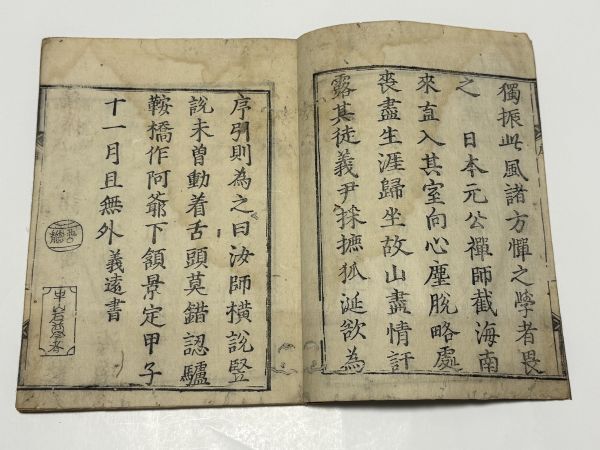 獨振此風諸方憚之學者畏
之　日本元公禪師截海南
來直入其室向心塵脫略處
喪盡生涯歸坐故山盡情訐
露其徒義尹採摭狐涎欲為
序引則為之曰汝師橫說豎
說未曾動着舌頭莫錯認驢
鞍橋作阿爺下頷景定甲子
十一月旦無外　義遠書